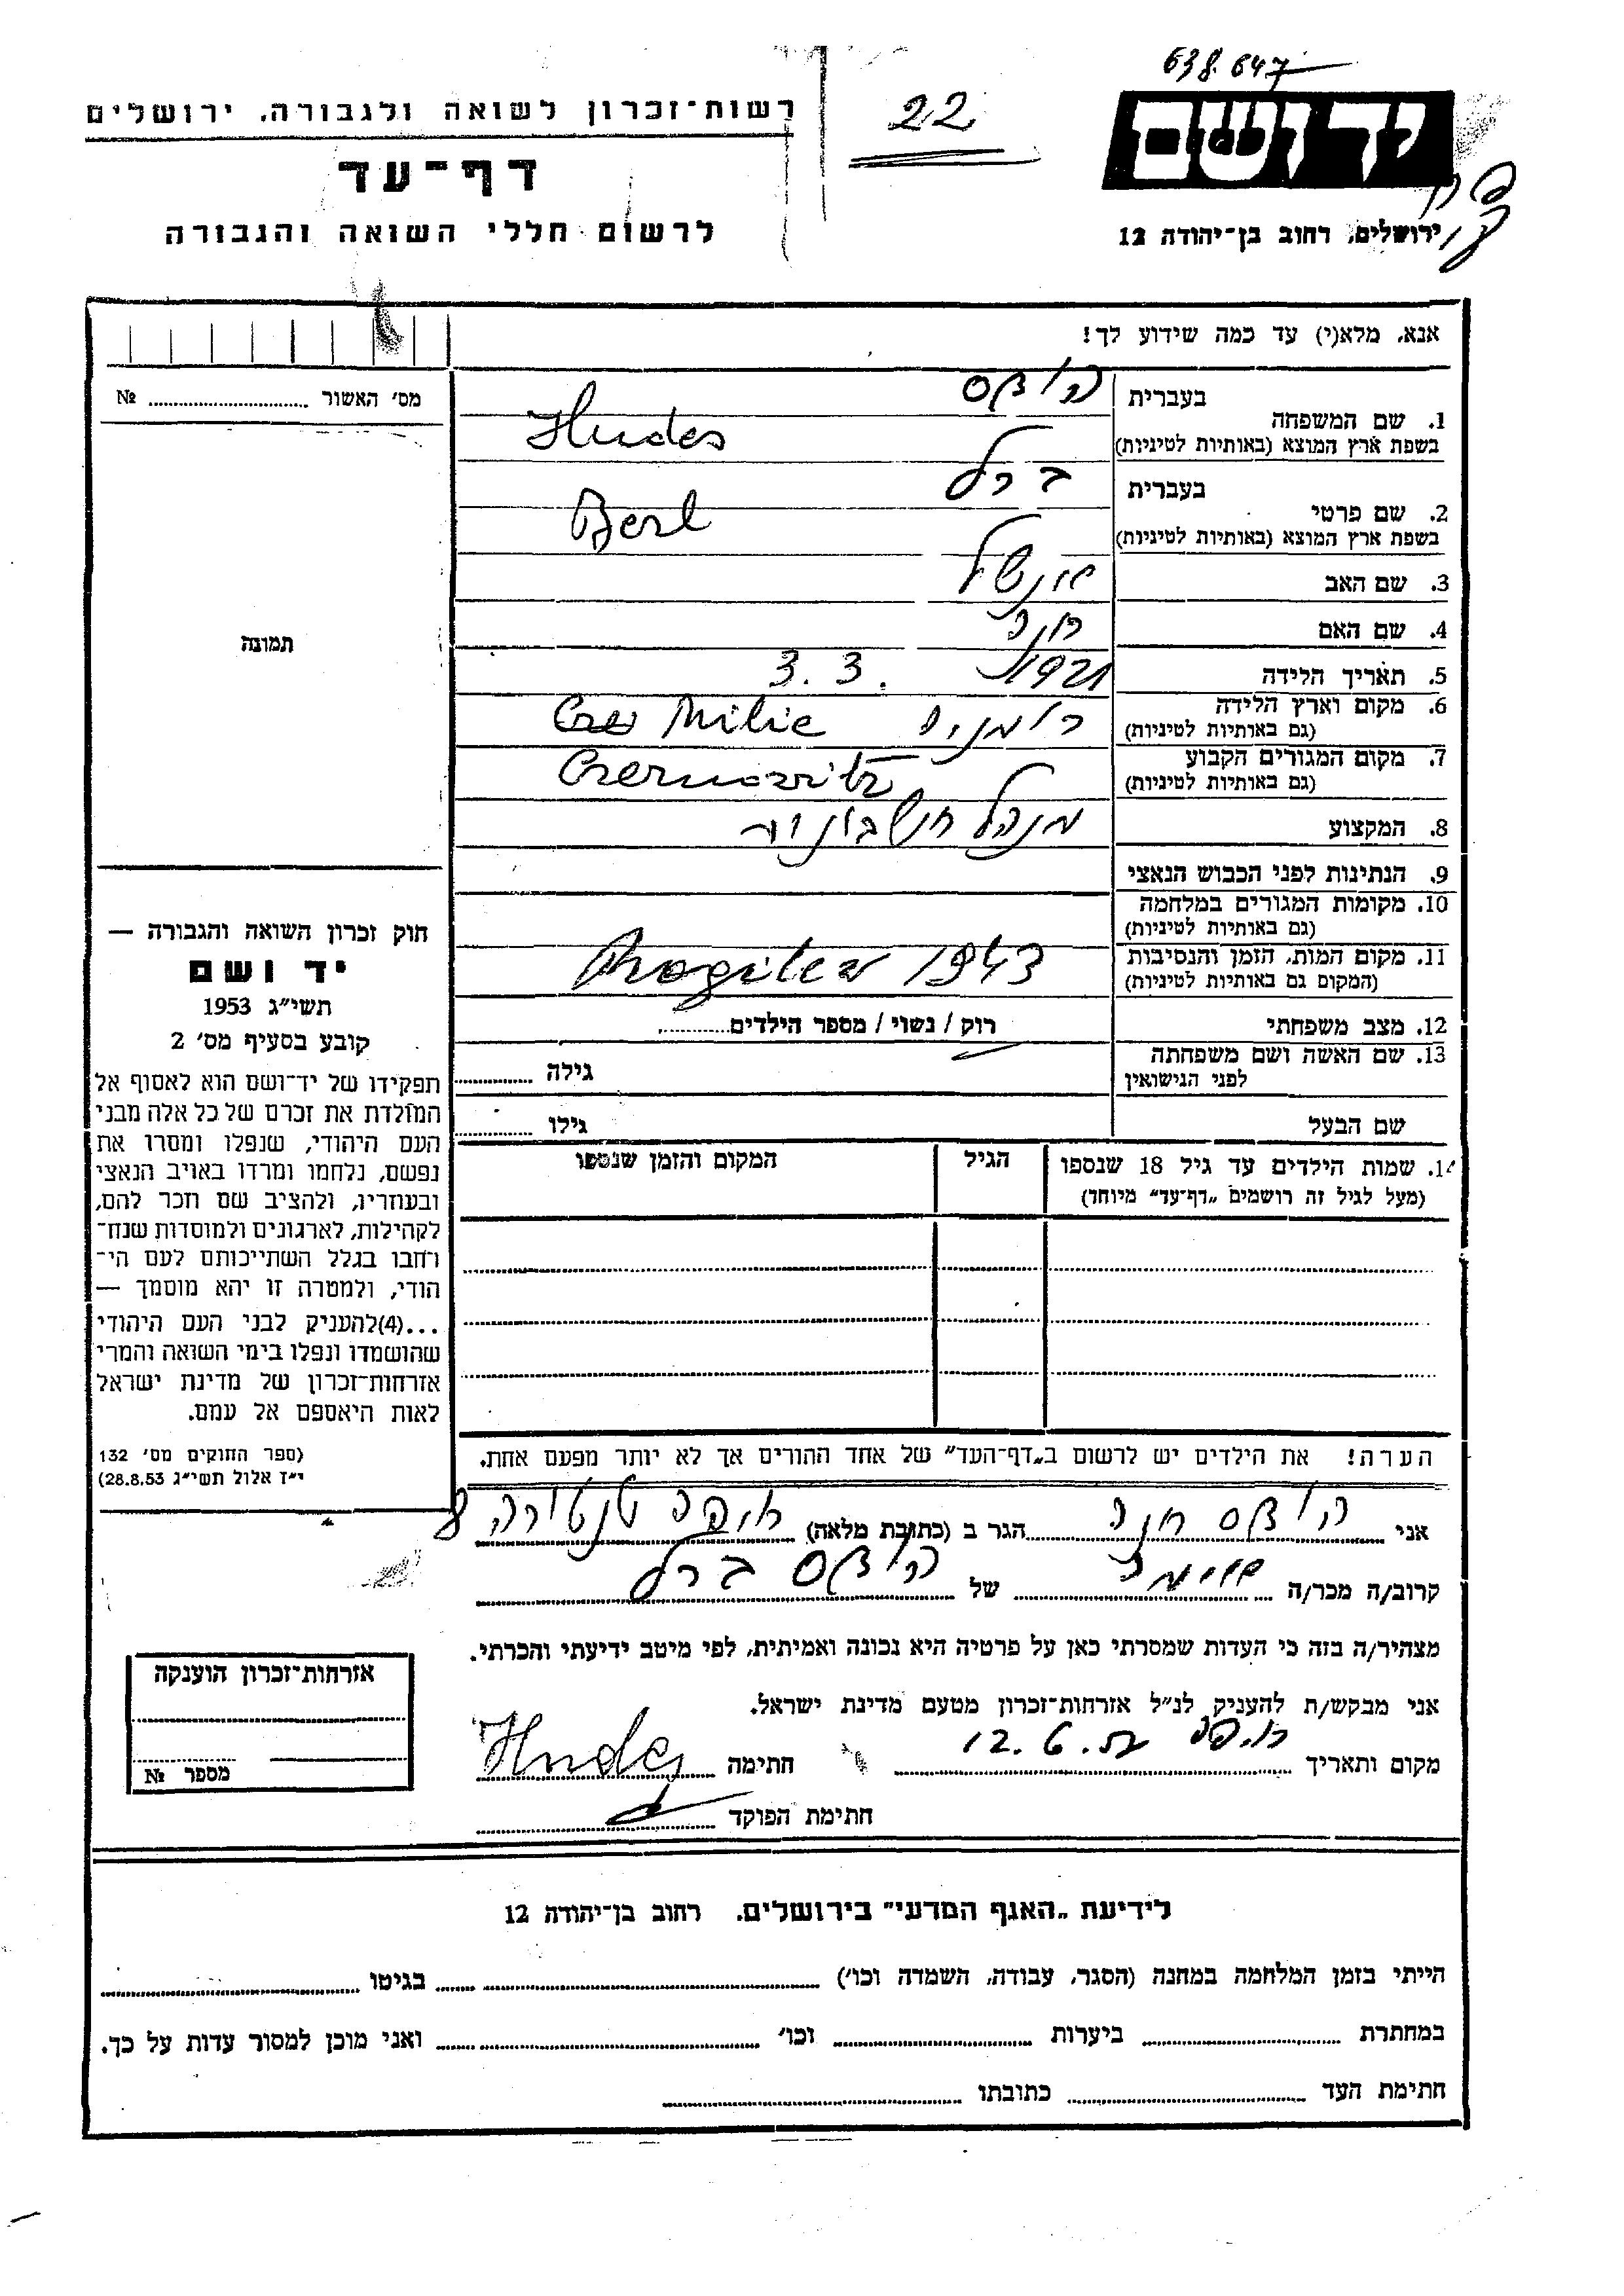 638.647
22
יד ושם
ירושלים, רחוב בן־יהודה 12
רשות־זכרון לשואה ולגבורה, ירושלים
דף־עד
לרשום חללי השואה והגבורה
אנא, מלא(י) עד כמה שידוע לך!
מס׳ האשור № ........
תמונה
1. שם המשפחה
בעברית הודס
בשפת ארץ המוצא (באותיות לטיניות) Hudes
2. שם פרטי
בעברית ברל
בשפת ארץ המוצא (באותיות לטיניות) Berl
3. שם האב אנשל
4. שם האם חנה
5. תאריך הלידה 3. 3. 1921
6. מקום וארץ הלידה רומניה Milie
(גם באותיות לטיניות)
7. מקום המגורים הקבוע Czernovitz
(גם באותיות לטיניות)
8. המקצוע מנהל חשבונות
9. הנתינות לפני הכבוש הנאצי
10. מקומות המגורים במלחמה
(גם באותיות לטיניות)
11. מקום המות, הזמן והנסיבות 1943
(המקום גם באותיות לטיניות)
12. מצב משפחתי רוק / נשוי / מספר הילדים ........
13. שם האשה ושם משפחתה גילה ........
לפני הנישואין
שם הבעל גילו ........
14. שמות הילדים עד גיל 18 שנספו הגיל המקום והזמן שנספו
(מעל לגיל זה רושמים „דף־עד״ מיוחד)
חוק זכרון השואה והגבורה —
יד ושם
תשי״ג 1953
קובע בסעיף מס׳ 2
תפקידו של יד־ושם הוא לאסוף אל
המולדת את זכרם של כל אלה מבני
העם היהודי, שנפלו ומסרו את
נפשם, נלחמו ומרדו באויב הנאצי
ובעוזריו, ולהציב שם וזכר להם,
לקהילות, לארגונים ולמוסדות שנח־
רחבו בגלל השתייכותם לעם הי־
הודי, ולמטרה זו יהא מוסמך —
...(4)להעניק לבני העם היהודי
שהושמדו ונפלו בימי השואה והמרי
אזרחות־זכרון של מדינת ישראל
לאות היאספם אל עמם.
(ספר החוקים מס׳ 132
י״ז אלול תשי״ג 28.8.53)
הערה! את הילדים יש לרשום ב„דף־העד״ של אחד ההורים אך לא יותר מפעם אחת.
אני הודס חנה הגר ב (כתובת מלאה) חיפה טנטורה
קרוב/ה מכר/ה של הודס ברל
מצהיר/ה בזה כי העדות שמסרתי כאן על פרטיה היא נכונה ואמיתית, לפי מיטב ידיעתי והכרתי.
אני מבקש/ת להעניק לנ״ל אזרחות־זכרון מטעם מדינת ישראל.
מקום ותאריך חיפה חתימה Hudes
חתימת הפוקד
אזרחות־זכרון הוענקה
מספר №
לידיעת „האגף המדעי״ בירושלים, רחוב בן־יהודה 12
הייתי בזמן המלחמה במחנה (הסגר, עבודה, השמדה וכו׳) ........ בגיטו ........
במחתרת ........ ביערות ........ וכו׳ ........ ואני מוכן למסור עדות על כך.
חתימת העד ........ כתובתו ........